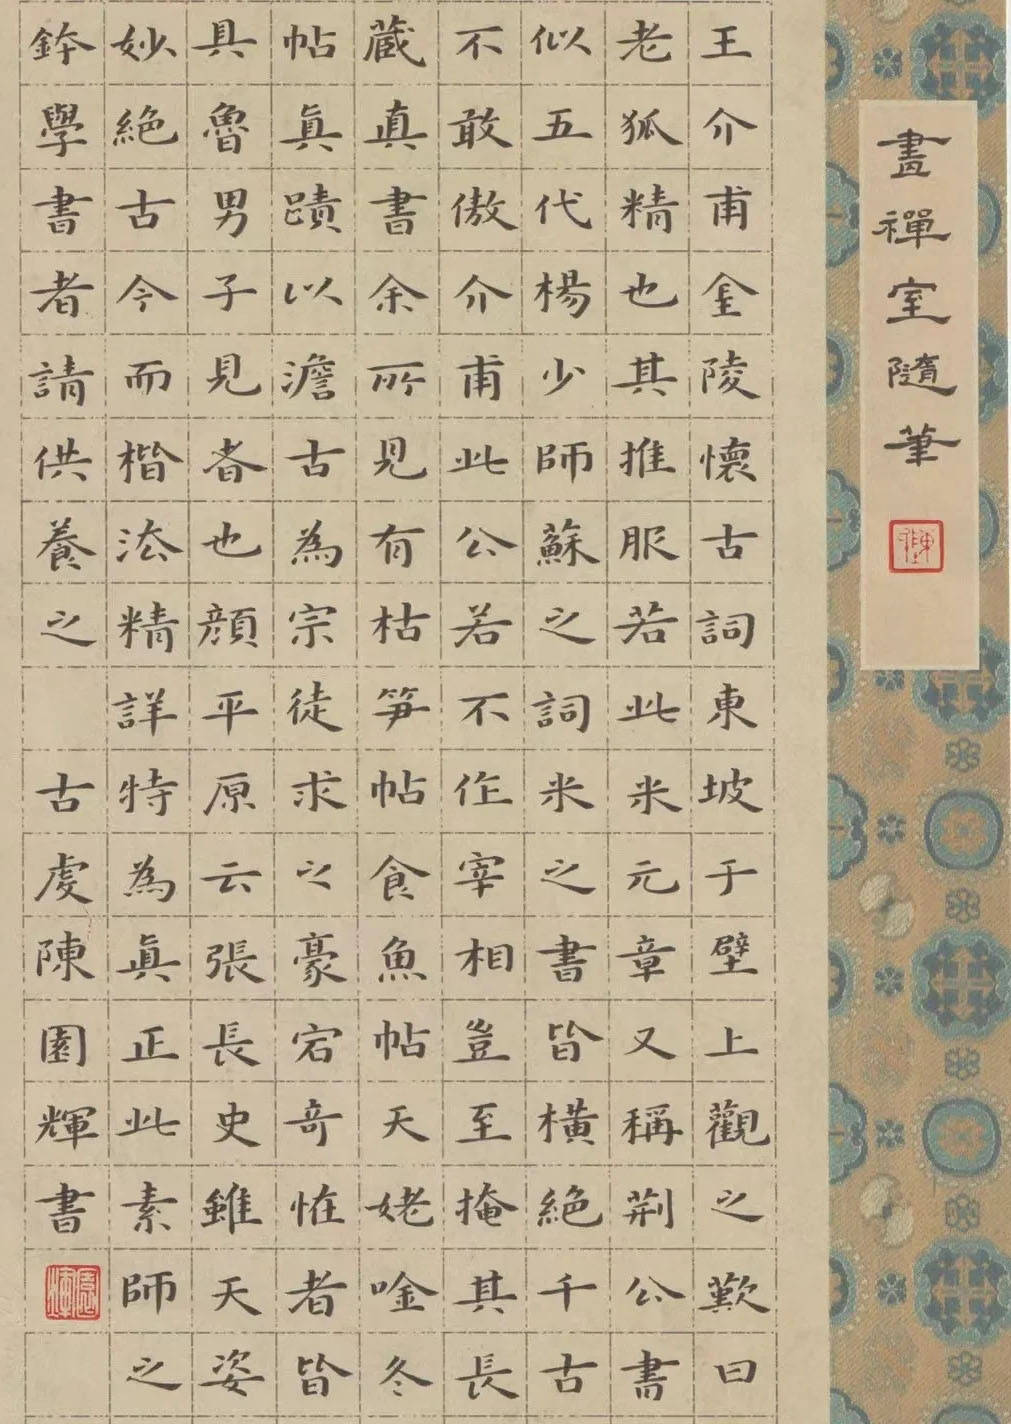 畫禪室隨筆
王介甫金陵懷古詞東坡于壁上觀之歎曰
老狐精也其推服若此米元章又稱荆公書
似五代楊少師蘇之詞米之書皆橫絕千古
不敢傲介甫此公若不作宰相豈至掩其長
藏真書余所見有枯笋帖食魚帖天姥唫冬
帖眞蹟以澹古為宗徒求之豪宕奇恠者皆
具魯男子見者也顔平原云張長史雖天姿
妙絕古今而楷法精詳特為眞正此素師之
鉢學書者請供養之 古虔陳園輝書